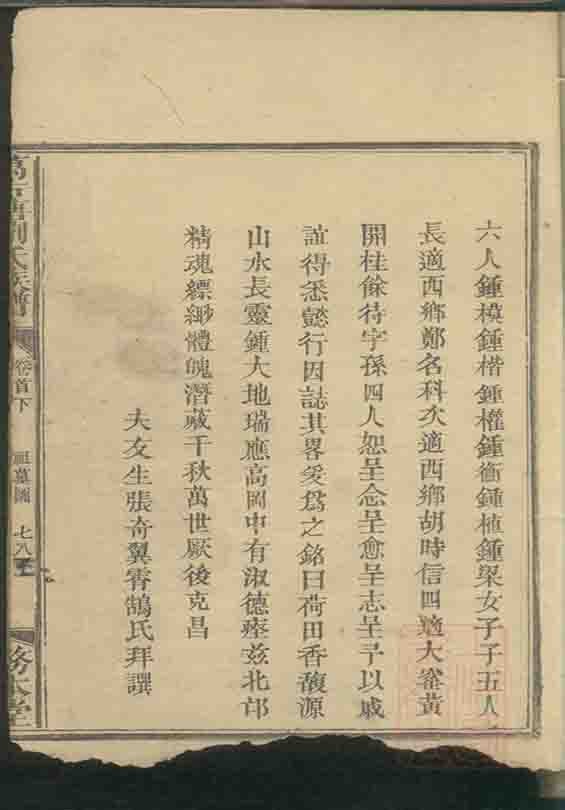 六人鍾模鍾楷鍾權鍾衡鍾植鍾梁女子子五人
長適西鄉鄭名科次適西鄉胡時信四適大窰黃
開桂餘待字孫四人恕呈念呈愈呈志呈予以戚
誼得悉懿行因誌其畧爰爲之銘曰荷田香馥源
山水長靈鍾大地瑞應高岡中有淑德瘞兹北邙
精魂縹緲體魄潛藏千秋萬世厥後克昌
夫友生張奇翼霄鵠氏拜譔
劉氏族譜
卷首下
祖墓圖
七八
務本堂